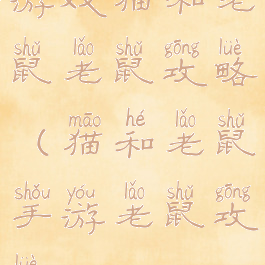 游戏猫和老
shǔ lǎo shǔ gōng lüè
鼠老鼠攻略
māo hé lǎo shǔ
（猫和老鼠
shǒu yóu lǎo shǔ gōng
手游老鼠攻
lüè